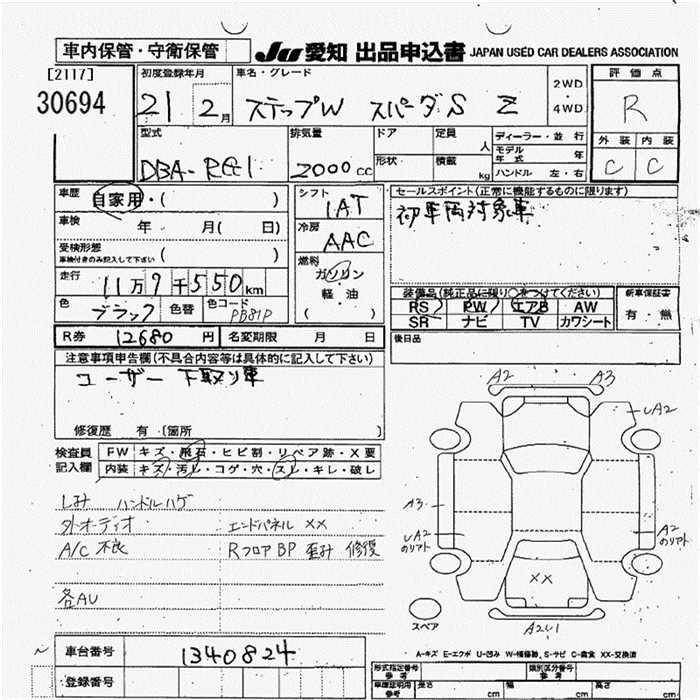 車内保管・守衛保管
JU 愛知 出品申込書 JAPAN USED CAR DEALERS ASSOCIATION
[2117]
30694
初度登録年月 車名・グレード 2WD ・ 4WD 評価点
21 2月 ステップW スパーダS Z R
型式 排気量 ドア 定員 人 ディーラー・並行 外装 内装
モデル年式 年
DBA-RG1 2000cc 形状 積載 kg ハンドル 左・右 C C
車歴 自家用・( )
シフト IAT
セールスポイント(正常に機能するものに限ります)
初車両対象車
車検 年 月( 日)
冷房 AAC
受検形態
車検付きのみ記入して下さい ( )
燃料 ガソリン
軽油
( )
走行 11万9千550km
色 ブラック 色替 色コード PB81P
装備品(純正品に限り○をつけてください) 新車保証書
RS PW エアB AW 有・無
SR ナビ TV カワシート
R券 12680円 名変期限 月 日
後日品
注意事項申告欄(不具合内容等は具体的に記入して下さい)
ユーザー下取り車
修復歴 有 (箇所 )
検査員記入欄
FW キズ・飛石・ヒビ割・リペア跡・X要
内装 キズ・汚れ・コゲ・穴・スレ・キレ・破レ
しみ ハンドルハゲ
外オーディオ エンドパネル XX
A/C 不良 RフロアBP 歪み 修復
各AU
A2 A3
UA2
A3
UA2
のリアト
A2
のリアト
XX
スペア
A2U1
A-キズ E-エクボ U-凹み W-補修跡 S-サビ C-腐食 XX-交換済
車台番号 1340824
登録番号
形式指定番号 類別区分番号
参考 参考
車庫証明用 参考 長さ cm 幅 cm 高さ cm